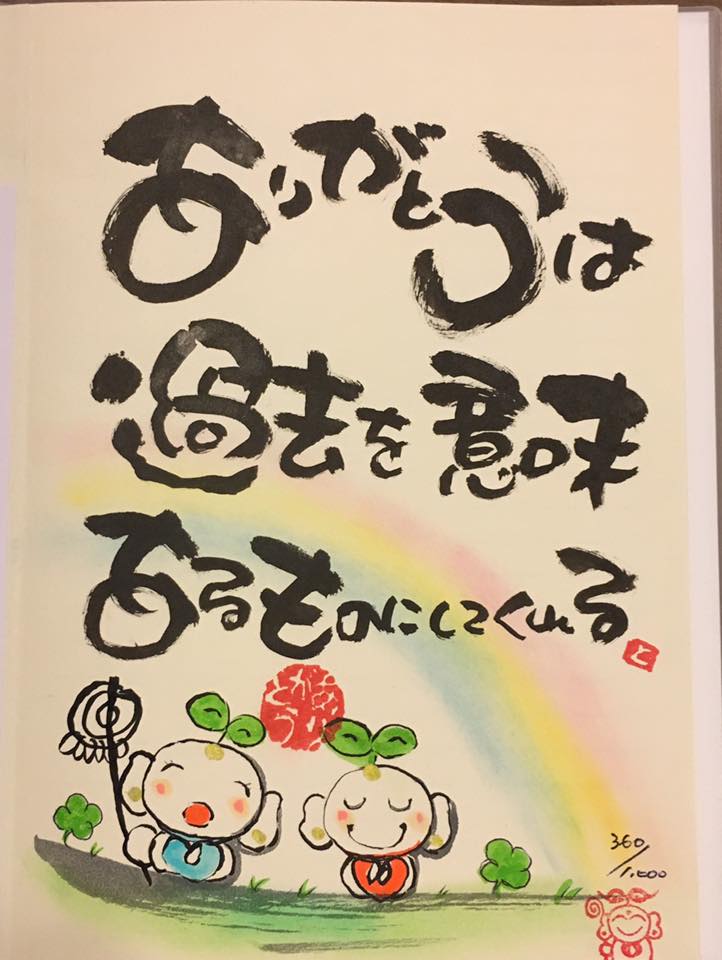 ありがとうは
過去を意味
あるものにしてくれる
と
360/1,000